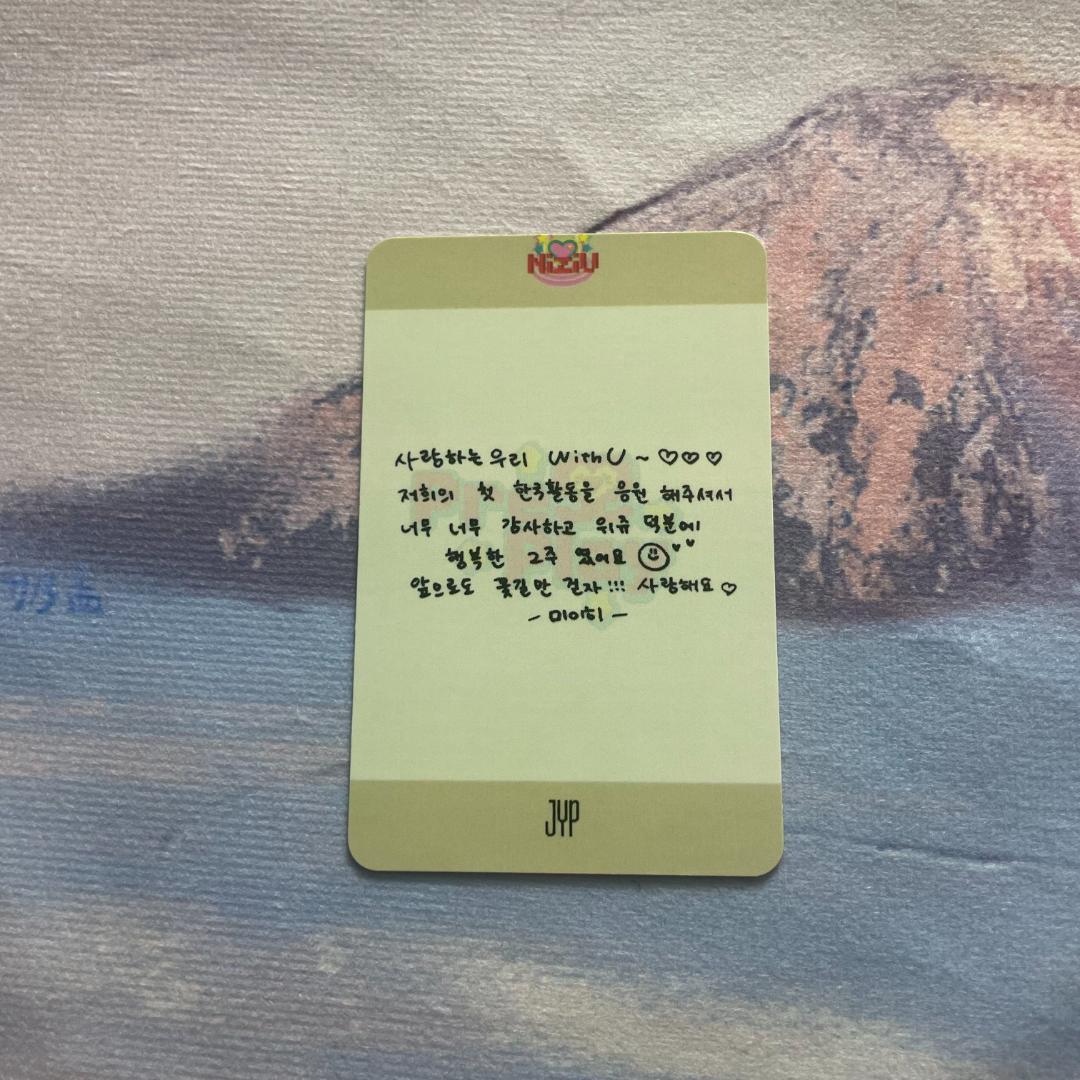 NiziU
사랑하는 우리 WithU ~ ♡♡♡
저희의 첫 한국활동을 응원 해주셔서
너무 너무 감사하고 위쥬 덕분에
행복한 2주 였어요
앞으로도 꽃길만 걷자!!! 사랑해요 ♡
- 미이히 -
Press Play
JYP